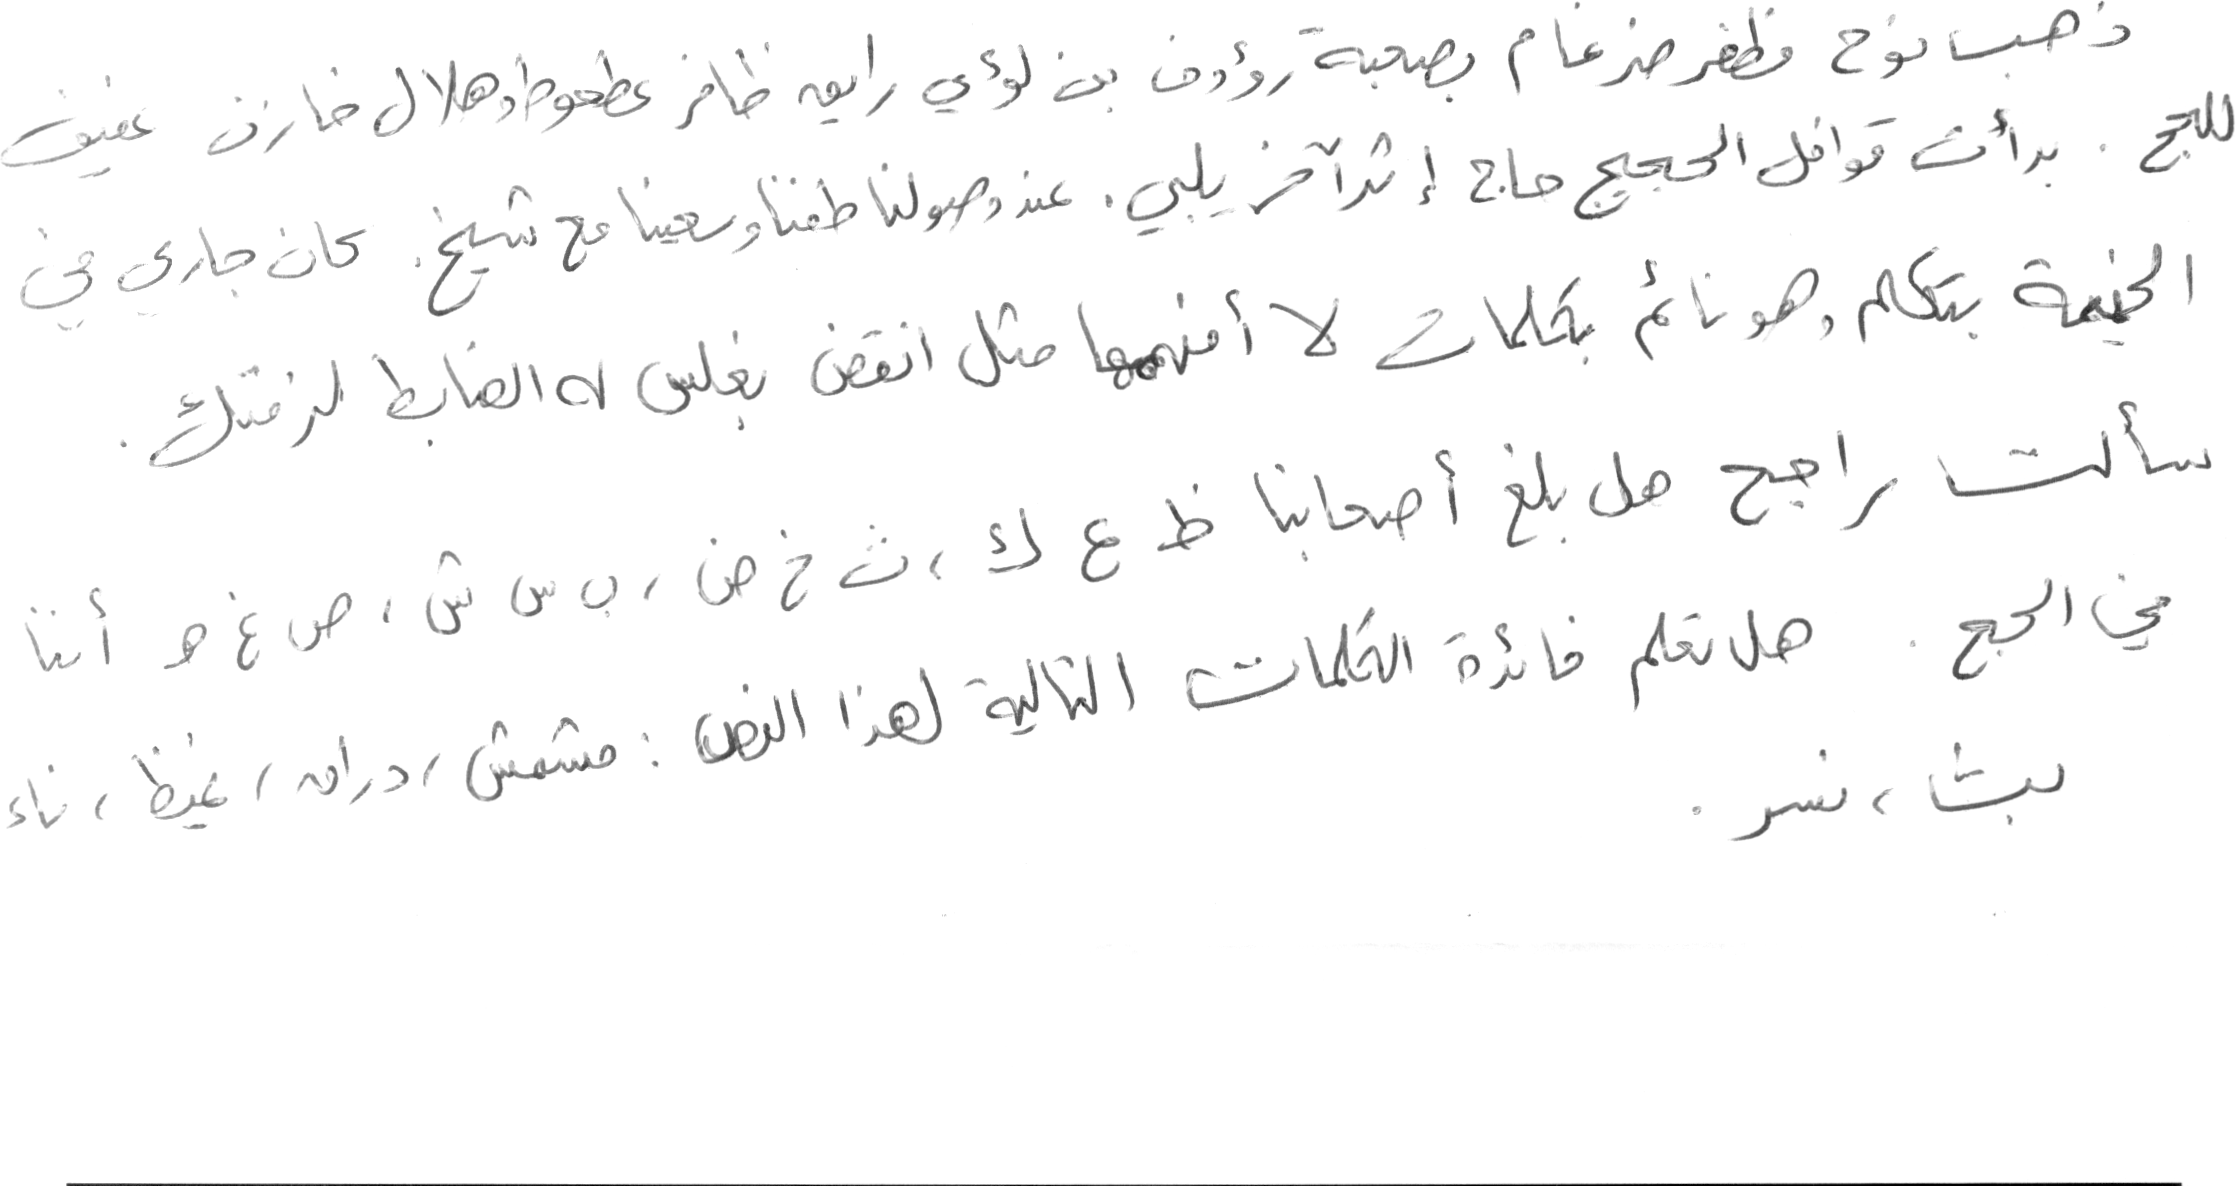 ذهب نوح مظفر ضرغام بصحبة رؤوف بن لؤي رايق ظافر عطعوط وهلال خازن عفيف
للحج . بدأت قوافل الحجيج حاج إثر آخر يلبي . عند وصولنا طفنا وسعينا مع شيخ . كان جاري في
الخيمة يتكلم وهو نائم بكلمات لا أفهمها مثل انقض بغلس له الضابط لزقتك .
سألت راجح هل بلغ أصحابنا ظ ع ك ، ث خ ض ، ب س ش ، ص غ هـ أننا
في الحج . هل تعلم فائدة الكلمات التالية لهذا النص : مشمش ، دراق ، غيظ ، ناء
بث ، نسر .